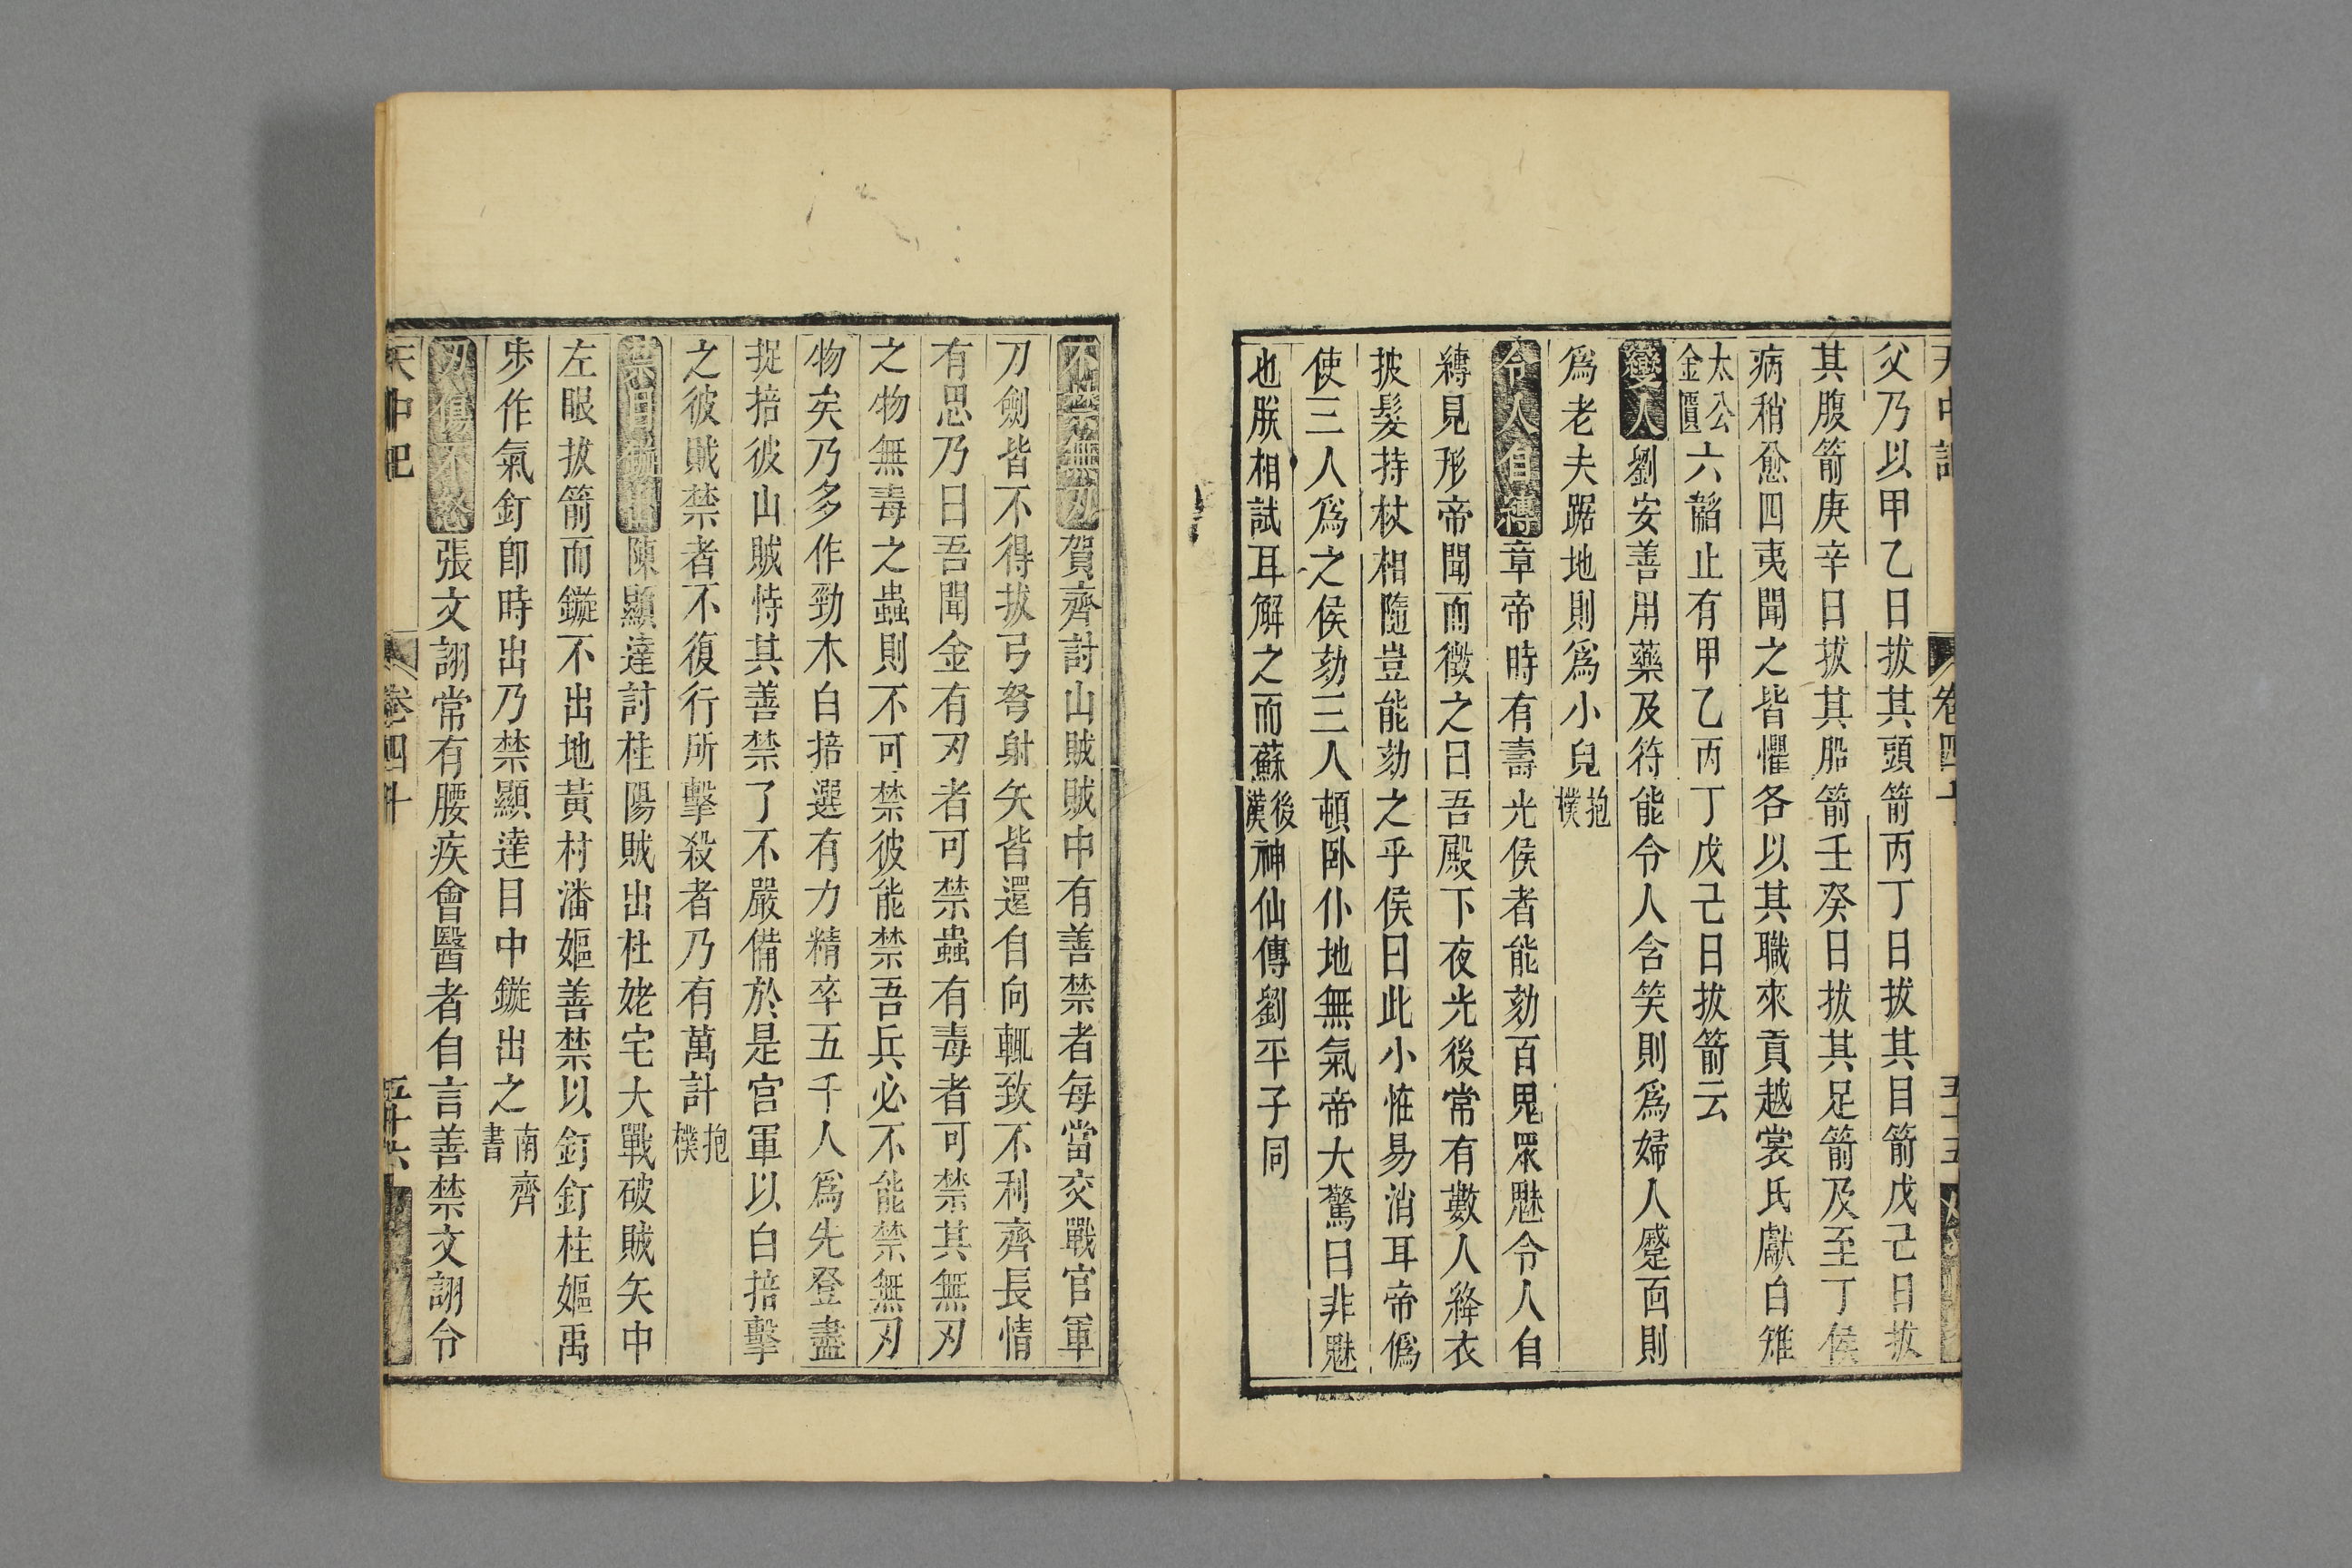 父乃以甲乙日拔其頭箭丙丁日拔其目箭戊己日拔
其腹箭庚辛日拔其股箭壬癸日拔其足箭及至丁侯
病稍愈四夷聞之皆懼各以其職來貢越裳氏獻白雉
太公金匱六韜止有甲乙丙丁戊己日拔箭云
變人劉安善用藥及符能令人含笑則爲婦人蹙面則
爲老夫踞地則爲小兒抱樸
令人自縛章帝時有壽光侯者能劾百鬼眾魅令人自
縛見形帝聞而徵之曰吾殿下夜光後常有數人絳衣
披髮持杖相隨豈能劾之乎侯曰此小恠易消耳帝僞
使三人爲之侯劾三人頓卧仆地無氣帝大驚曰非魅
也朕相試耳解之而蘇後漢神仙傳劉平子同
天中記 卷四十 五十五
不禁無刃賀齊討山賊賊中有善禁者每當交戰官軍
刀劍皆不得拔弓弩射矢皆還自向輒致不利齊長情
有思乃曰吾聞金有刃者可禁蟲有毒者可禁其無刃
之物無毒之蟲則不可禁彼能禁吾兵必不能禁無刃
物矣乃多作勁木白掊選有力精卒五千人爲先登盡
捉掊彼山賊恃其善禁了不嚴備於是官軍以白掊擊
之彼賊禁者不復行所擊殺者乃有萬計抱樸
禁目鏃出陳顯達討桂陽賊出杜姥宅大戰破賊矢中
左眼拔箭而鏃不出地黃村潘嫗善禁以釘釘柱嫗禹
步作氣釘卽時出乃禁顯達目中鏃出之南齊書
刃傷不愁張文詡常有腰疾會醫者自言善禁文詡令
天中記 卷四十 五十六